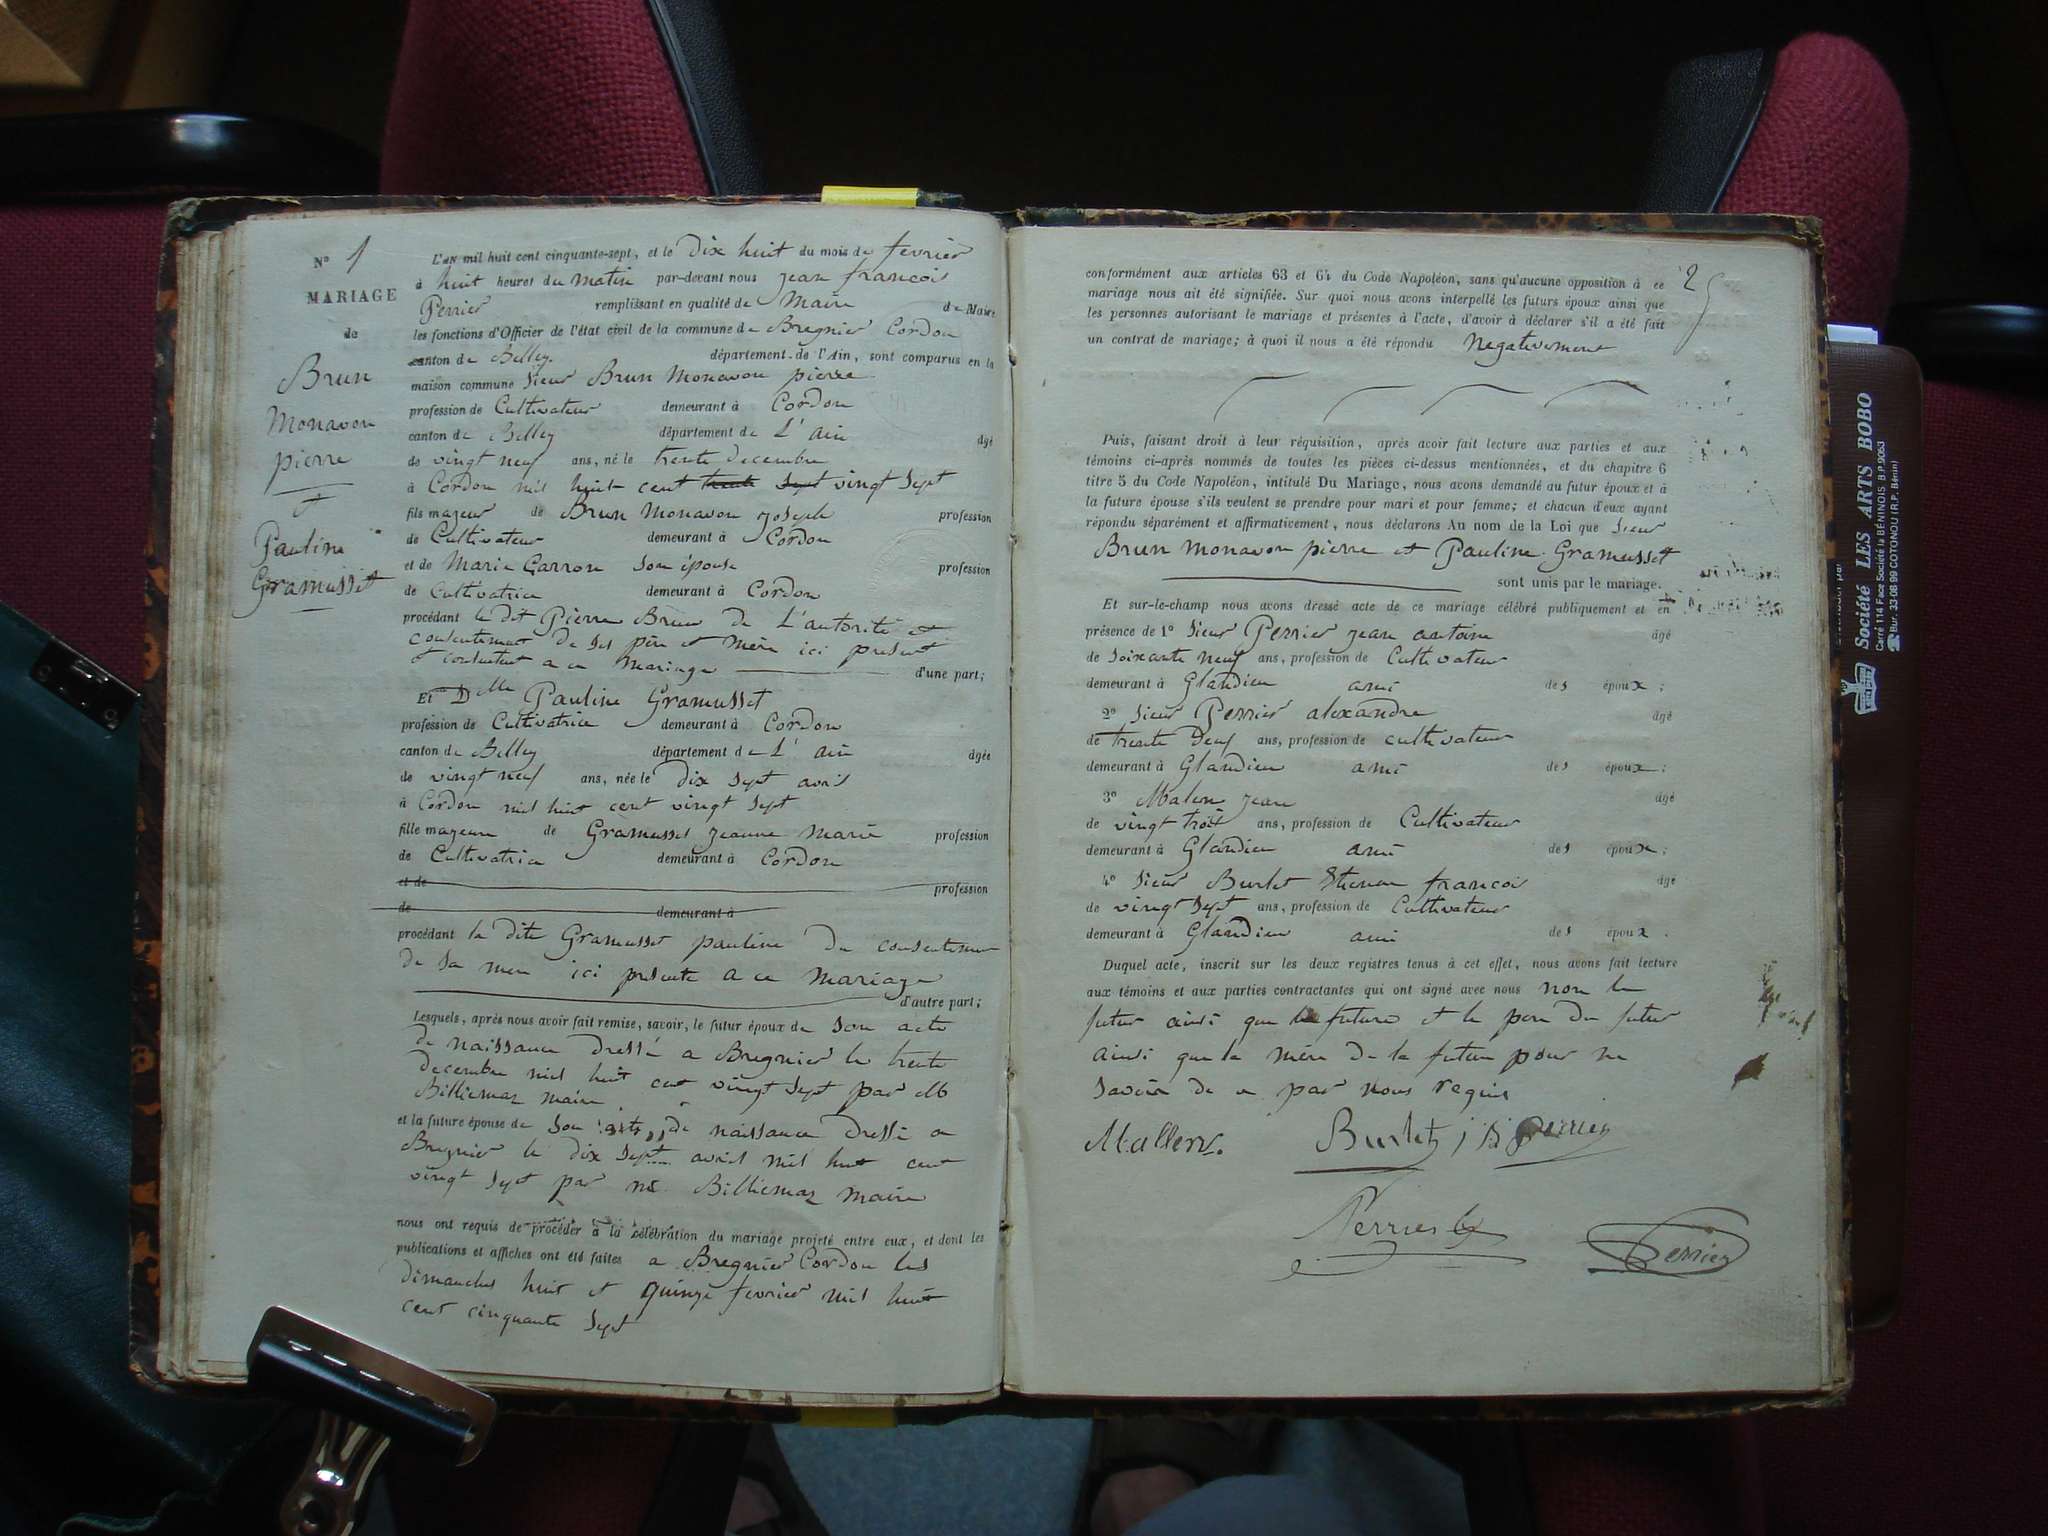 N° 1
MARIAGE
de
Brun
Monavon
pierre
et
Pauline
Gramusset
L'AN mil huit cent cinquante-sept, et le Dix huit du mois de fevrier
à huit heures du matin par-devant nous jean francois
Perrier remplissant en qualité de Maire de Maire
les fonctions d'Officier de l'état civil de la commune de Bregnier Cordon
canton de Belley département de l'Ain, sont comparus en la
maison commune Sieur Brun Monavon pierre
profession de Cultivateur demeurant à Cordon
canton de Belley département de L' ain âgé
de vingt neuf ans, né le trente decembre
à Cordon mil huit cent trente sept vingt sept
fils majeur de Brun Monavon joseph profession
de Cultivateur demeurant à Cordon
et de Marie Garron son épouse profession
de Cultivatrice demeurant à Cordon
procédant le dit Pierre Brun de L'autorité et
consentement de ses père et mère ici present
et consentent a ce mariage d'une part;
Et Dlle Pauline Gramusset
profession de Cultivatrice demeurant à Cordon
canton de Belley département de L' ain âgée
de vingt neuf ans, née le dix sept avril
à Cordon mil huit cent vingt sept
fille majeure de Gramusset jeanne marie profession
de Cultivatrice demeurant à Cordon
et de profession
de demeurant à
procédant la dite Gramusset pauline du consentement
de sa mere ici presente a ce mariage
d'autre part;
Lesquels, après nous avoir fait remise, savoir, le futur époux de son acte
de naissance dressé a Bregnier le trente
decembre mil huit cent vingt sept par
Billiemaz maire
et la future épouse de son acte de naissance dressé a
Bregnier le dix sept avril mil huit cent
vingt sept par Billiemaz maire
nous ont requis de procéder à la célébration du mariage projeté entre eux, et dont les
publications et affiches ont été faites a Bregnier Cordon les
dimanches huit et quinze fevrier mil huit
cent cinquante sept
2
conformément aux articles 63 et 64 du Code Napoléon, sans qu'aucune opposition à ce
mariage nous ait été signifiée. Sur quoi nous avons interpellé les futurs époux ainsi que
les personnes autorisant le mariage et présentes à l'acte, d'avoir à déclarer s'il a été fait
un contrat de mariage; à quoi il nous a été répondu Negativement
Puis, faisant droit à leur réquisition, après avoir fait lecture aux parties et aux
témoins ci-après nommés de toutes les pièces ci-dessus mentionnées, et du chapitre 6
titre 5 du Code Napoléon, intitulé Du Mariage, nous avons demandé au futur époux et à
la future épouse s'ils veulent se prendre pour mari et pour femme; et chacun d'eux ayant
répondu séparément et affirmativement, nous déclarons Au nom de la Loi que Sieur
Brun monavon pierre et Pauline Gramusset
sont unis par le mariage.
Et sur-le-champ nous avons dressé acte de ce mariage célébré publiquement et en
présence de 1° Sieur Perrier jean antoine âgé
de Soixante neuf ans, profession de Cultivateur
demeurant à Glandieu ami des époux;
2° Sieur Perrier alexandre âgé
de trente Deux ans, profession de cultivateur
demeurant à Glandieu ami des époux;
3° Malen jean âgé
de vingt trois ans, profession de Cultivateur
demeurant à Glandieu ami des époux;
4° Sieur Burlet Etienne francois âgé
de vingt sept ans, profession de Cultivateur
demeurant à Glandieu ami des époux.
Duquel acte, inscrit sur les deux registres tenus à cet effet, nous avons fait lecture
aux témoins et aux parties contractantes qui ont signé avec nous non le
futur ainsi que la future et le pere du futur
ainsi que la mère de la future pour ne
savoir de ce par nous requis
Mallen. Burlet Perrier
Perrier Perrier
Société LES ARTS BOBO
Carré 114 Face Société la BÉNINOIS B.P. 9053
Bur. 33 08 99 COTONOU (R.P. Bénin)